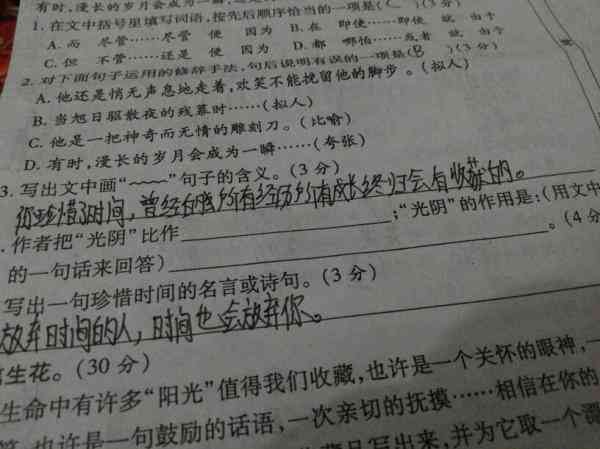 有时,漫长的岁月会成为一瞬
1. 在文中括号里填写词语,按先后顺序恰当的一项是( C )(3分)
A. 而 尽管……尽管 便 因为 B. 在 即使……即使 就 由于
C. 但 不管……还是 便 因为 D. 都 哪怕……或者 就 由于
2. 对下面句子运用的修辞手法,句后说明有误的一项是(B)(3分)
A. 他还是悄无声息地走着,欢笑不能挽留他的脚步。(拟人)
B. 当旭日驱散夜的残幕时……(拟人)
C. 他是一把神奇而无情的雕刻刀。(比喻)
D. 有时,漫长的岁月会成为一瞬……(夸张)
3. 写出文中画“﹏﹏”句子的含义。(3分)
你珍惜了时间,曾经的所有经历所有成长终归会有收获的。
. 作者把“光阴”比作 ;“光阴”的作用是:(用文中
的一句话来回答) 。(4分
写出一句珍惜时间的名言或诗句。(3分)
放弃时间的人,时间也会放弃你。
生花。(30分)
生命中有许多“阳光”值得我们收藏,也许是一个关怀的眼神,一
也许是一句鼓励的话语,一次亲切的抚摸……相信在你的
写出来,并为它取一个